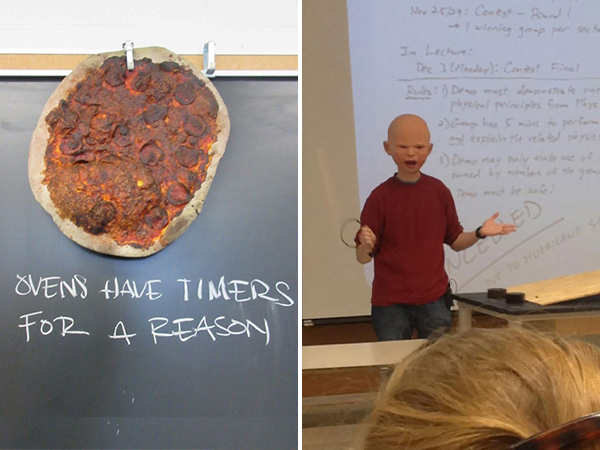 OVENS HAVE TIMERS
FOR A REASON
Nov 25/29: Contest – Round 1
→ 1 winning group per
In Lecture:
Dec 3 (Monday): Contest Final
Rules: 1) Demo must demonstrate
physical principles from
2) Group has 5 mins to perform
and explain the related
3) Demo may only make use of
owned by members of the
Demo must be safe!